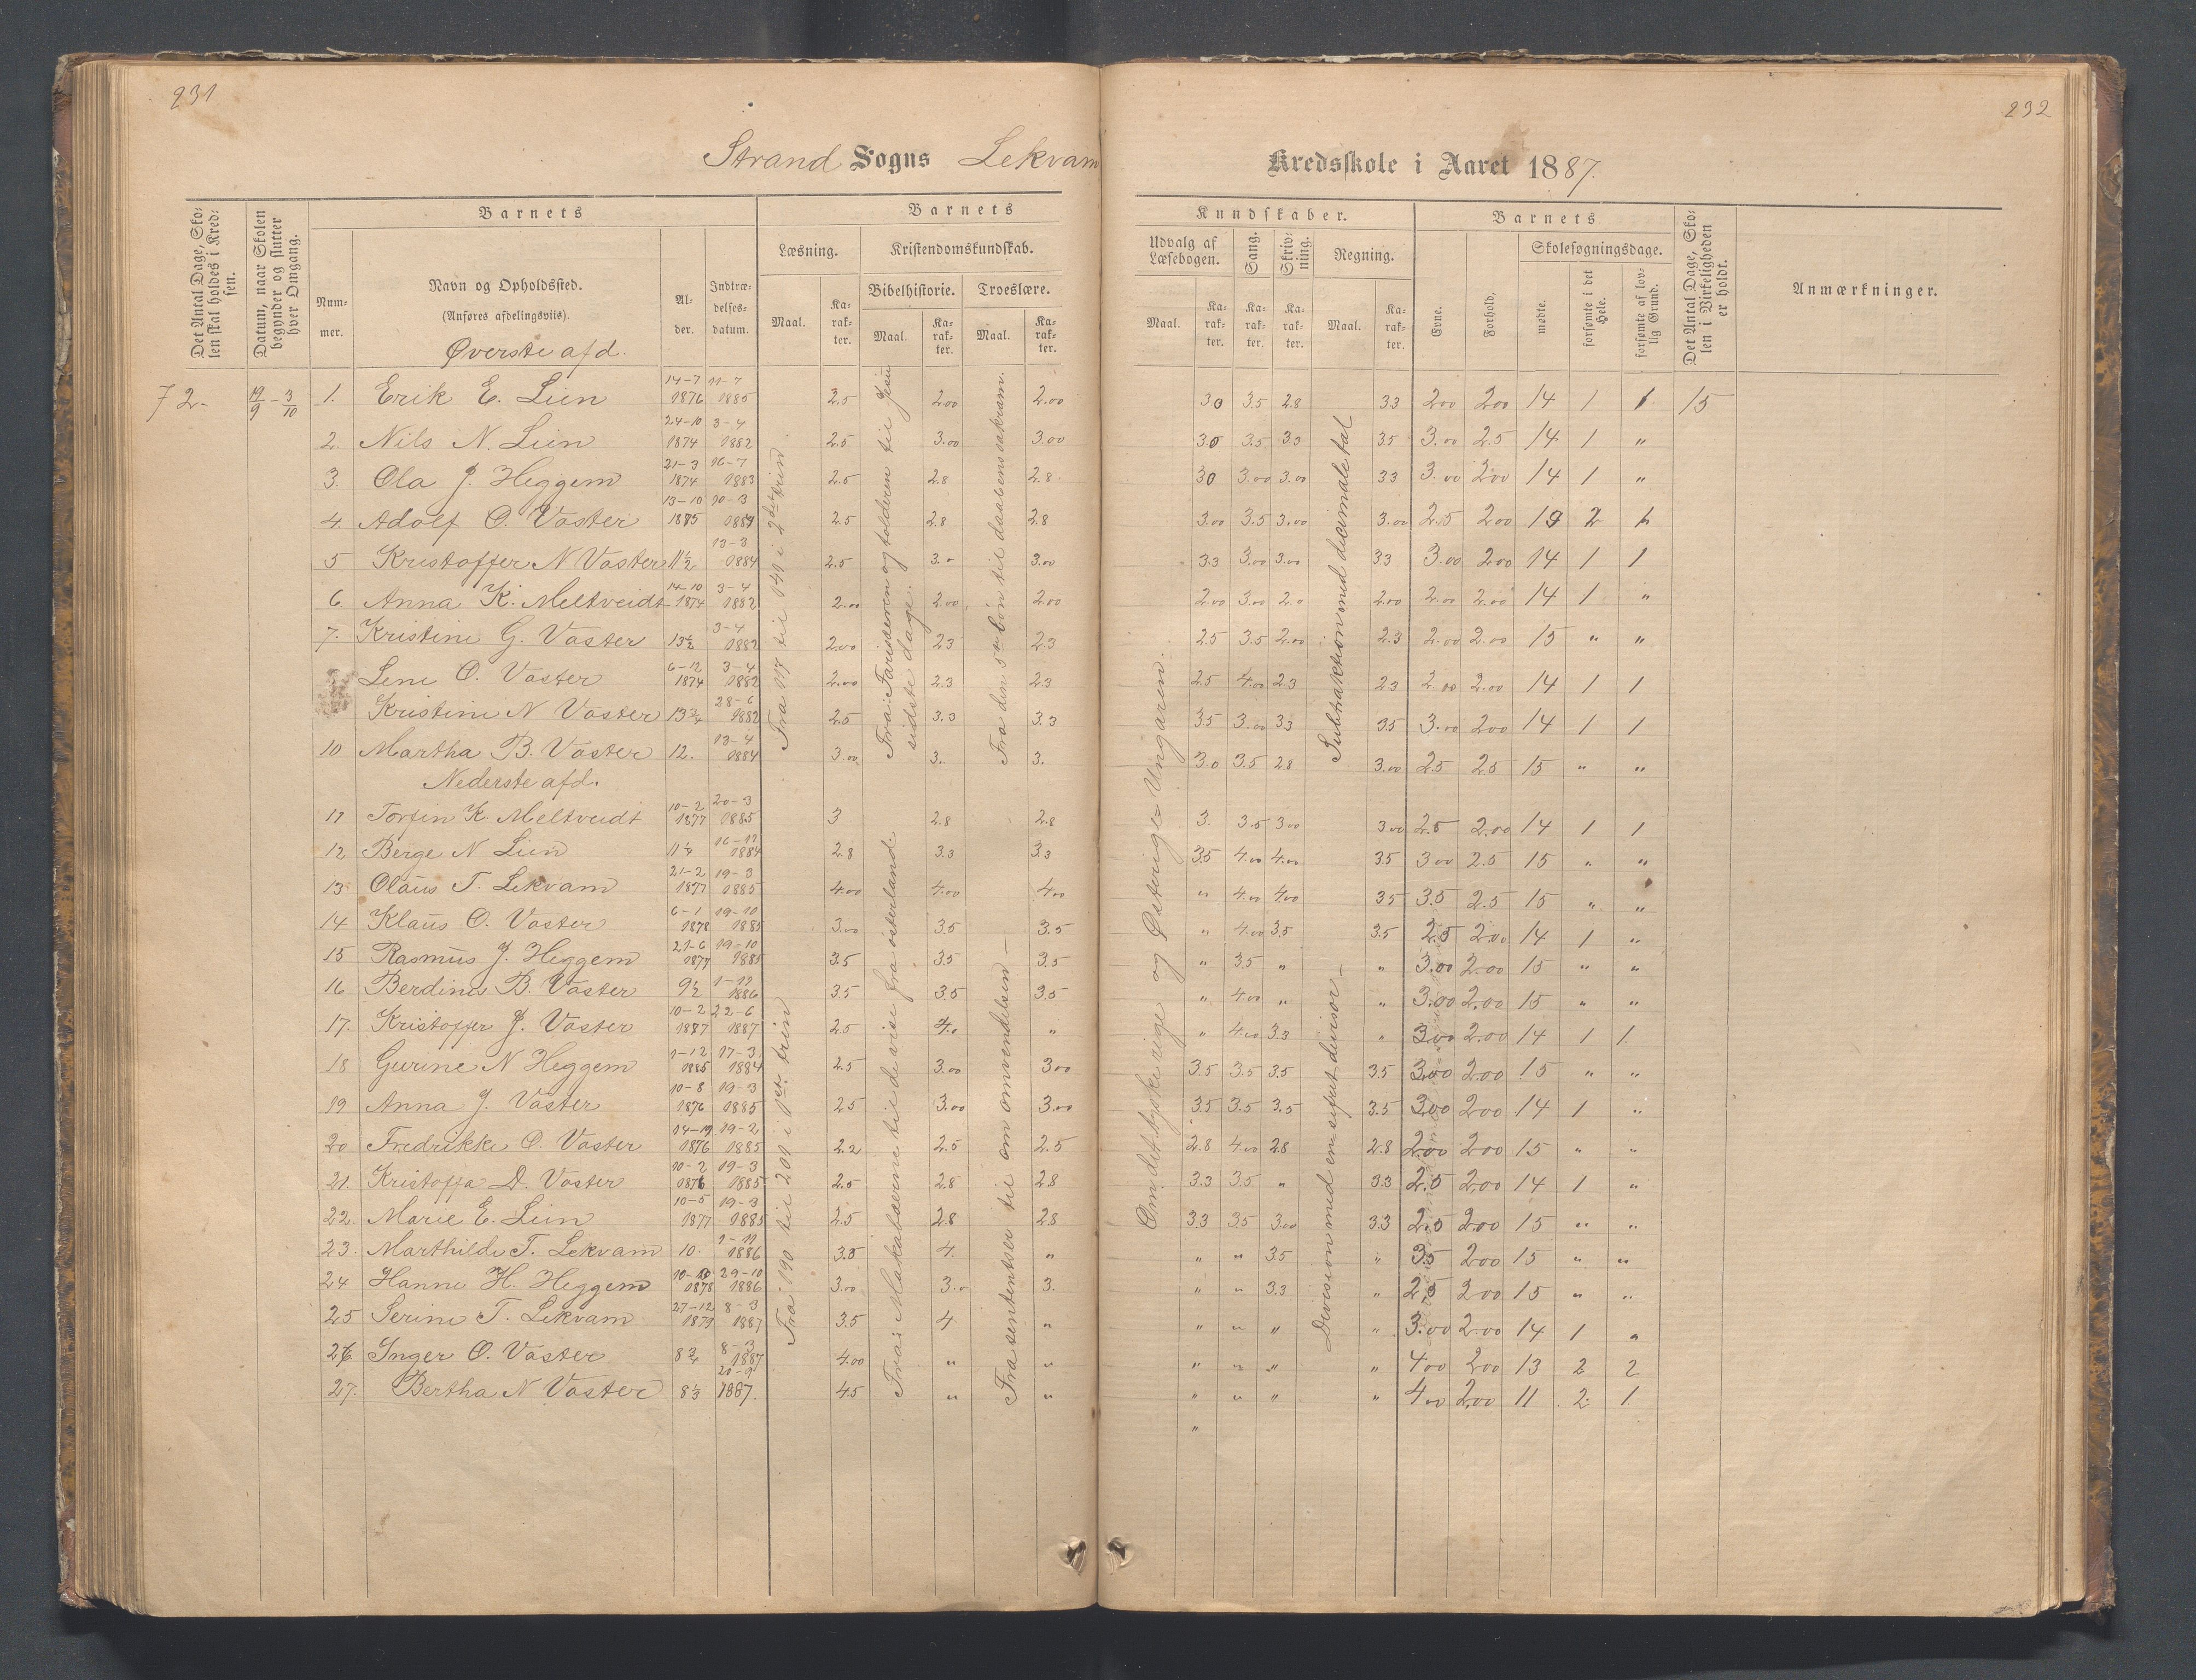 231
232
Strand Sogns Lekvam Kredsskole i Aaret 1887.
Det Antal Dage, Skolen skal holdes i Kredsen.
Datum, naar Skolen begynder og slutter hver Omgang.
Barnets
Nummer.
Navn og Opholdssted.
(Anføres afdelingsviis).
Øverste afd.
Alder.
Indtrædelsesdatum.
Barnets Kundskaber.
Læsning.
Maal.
Karakter.
Kristendomskundskab.
Bibelhistorie.
Maal.
Karakter.
Troeslære.
Maal.
Karakter.
Udvalg af Læsebogen.
Maal.
Karakter.
Sang.
Karakter.
Skrivning.
Karakter.
Regning.
Maal.
Karakter.
Barnets
Evne.
Forhold.
Skolesøgningsdage.
mødte.
forsømte i det Hele.
forsømte af lovlig Grund.
Det Antal Dage, Skolen i Virkeligheden er holdt.
Anmærkninger.
72- 19/9 - 3/10 1. Erik E. Lien 14-7 1876 11-7 1885 2.5 2.00 2.00 30 3.5 2.8 33 200 200 14 1 1 15
2. Nils N. Lien 24-10 1874 3-4 1882 2.5 3.00 3.00 30 3.5 33 35 3.00 2.5 14 1 "
3. Ola J. Heggem 21-3 1874 16-7 1883 2.5 2.8 2.8 30 3.00 3.00 33 3.00 200 14 1 "
4. Adolf O. Vaster 13-10 1875 10-3 2.5 2.8 2.8 3.00 3.5 3.00 3.00 2.5 200 2
5 Kristoffer N Vaster 11½ 13-3 1884 2.5 3.0 3.00 3.3 3.00 3.00 33 3.00 200 14 1 1
6. Anna K. Meltveidt 14-10 1874 3-4 1882 2.00 2.00 200 2.00 3.00 2.0 2.00 2.00 2.00 14 1 "
7. Kristine G. Vaster 13½ 3-4 1882 2.00 23 2.3 25 3.5 2.00 2.3 2.00 2.00 15 " "
Lene O. Vaster 6-12 1874 3-4 1882 2.00 2.3 23 25 4.00 23 23 2.00 2.00 14 1 1
Kristine N Vaster 13¾ 28-6 1882 2.5 3.3 3.3 35 3.00 33 35 3.00 200 14 1 1
10 Martha B. Vaster 12. 13-4 1884 3.00 3. 3. 3.0 3.5 28 3.00 25 25 15 " "
Nederste afd.
11 Torfin K. Meltveidt 10-2 1877 20-3 1885 3 2.8 2.8 3. 3.5 300 300 2.5 2.00 14 1 1
12 Berge N Lien 11¼ 1884 2.8 3.3 3.3 35 4.00 4.00 35 300 2.5 15 " "
13 Olaus T. Lekvam 21-2 1877 19-3 1885 4.00 4.00 400 " 4.00 400 35 3.5 2.5 15 " "
14 Klaus O. Vaster 6-1 1878 19-10 1885 3.00 35 3.5 " 4.00 3.5 3.5 2.5 200 14 1 "
15 Rasmus J. Heggem 21-6 1877 19-10 1885 35 35 35 " 35 " " 3.00 2.00 15 " "
16 Berdine B. Vaster 9½ 1886 35 35 35 " 4.00 " " 3.00 2.00 15 " "
17. Kristoffer J. Vaster 10-2 22-6 1887 2.5 4.0 " " 4.00 3.3 " 300 2.00 14 1 1.
18 Gurine N Heggem 1-12 17-3 1884 2.5 3.00 300 3.5 3.5 3.5 3.5 300 2.00 15 " "
19 Anna J. Vaster 10-8 1876 19-3 1885 25 3.00 3.00 35 3.5 3.5 3.5 300 200 14 1 "
20 Fredrikke O. Vaster 1876 19-2 1885 2.2 2.5 2.5 2.8 4.00 28 2.8 200 200 15 " "
21. Kristoffa D. Vaster 10-2 1876 19-3 1885 2.5 2.8 28 3.3 3.5 " 33 2.5 2.00 14 1 "
22. Marie E. Lien 10-5 1877 19-3 1885 2.5 28 28 33 35 300 33 2.5 200 15 " "
23. Marthilde T. Lekvam 10. 1886 3.5 4. " " " 35 " 35 200 15 " "
24 Hanne H. Heggem 1878 29-10 1886 3.00 3.0 3. " " 3.3 " 2.5 200 15 " "
25 Serine T. Lekvam 27-12 1879 8-3 1887 3.5 4 " " " " " 3.00 2.00 14 1 "
26 Inger O. Vaster 8¾ 8-3 1887 4.00 " " " " " " 400 200 13 2 2
27. Bertha N Vaster 8⅓ 1887. 45 " " " " " " 400 2.00 11 2 1.
"
Fra 117 til 141 i 2det trin.
Fra 190 til 201 i 1ste trin
Fra: Farisæeren og tolderen til Jesu sidste dage.
Fra: Makabæerne til de vise fra østerland.
Fra den 5te bøn til daabens sakram.
Fra sentensiser til om omvendelsen —
Om det tyske rige og Østerige Ungaren.
Subtraktion med decimale tal
Division med en sifret divisor —